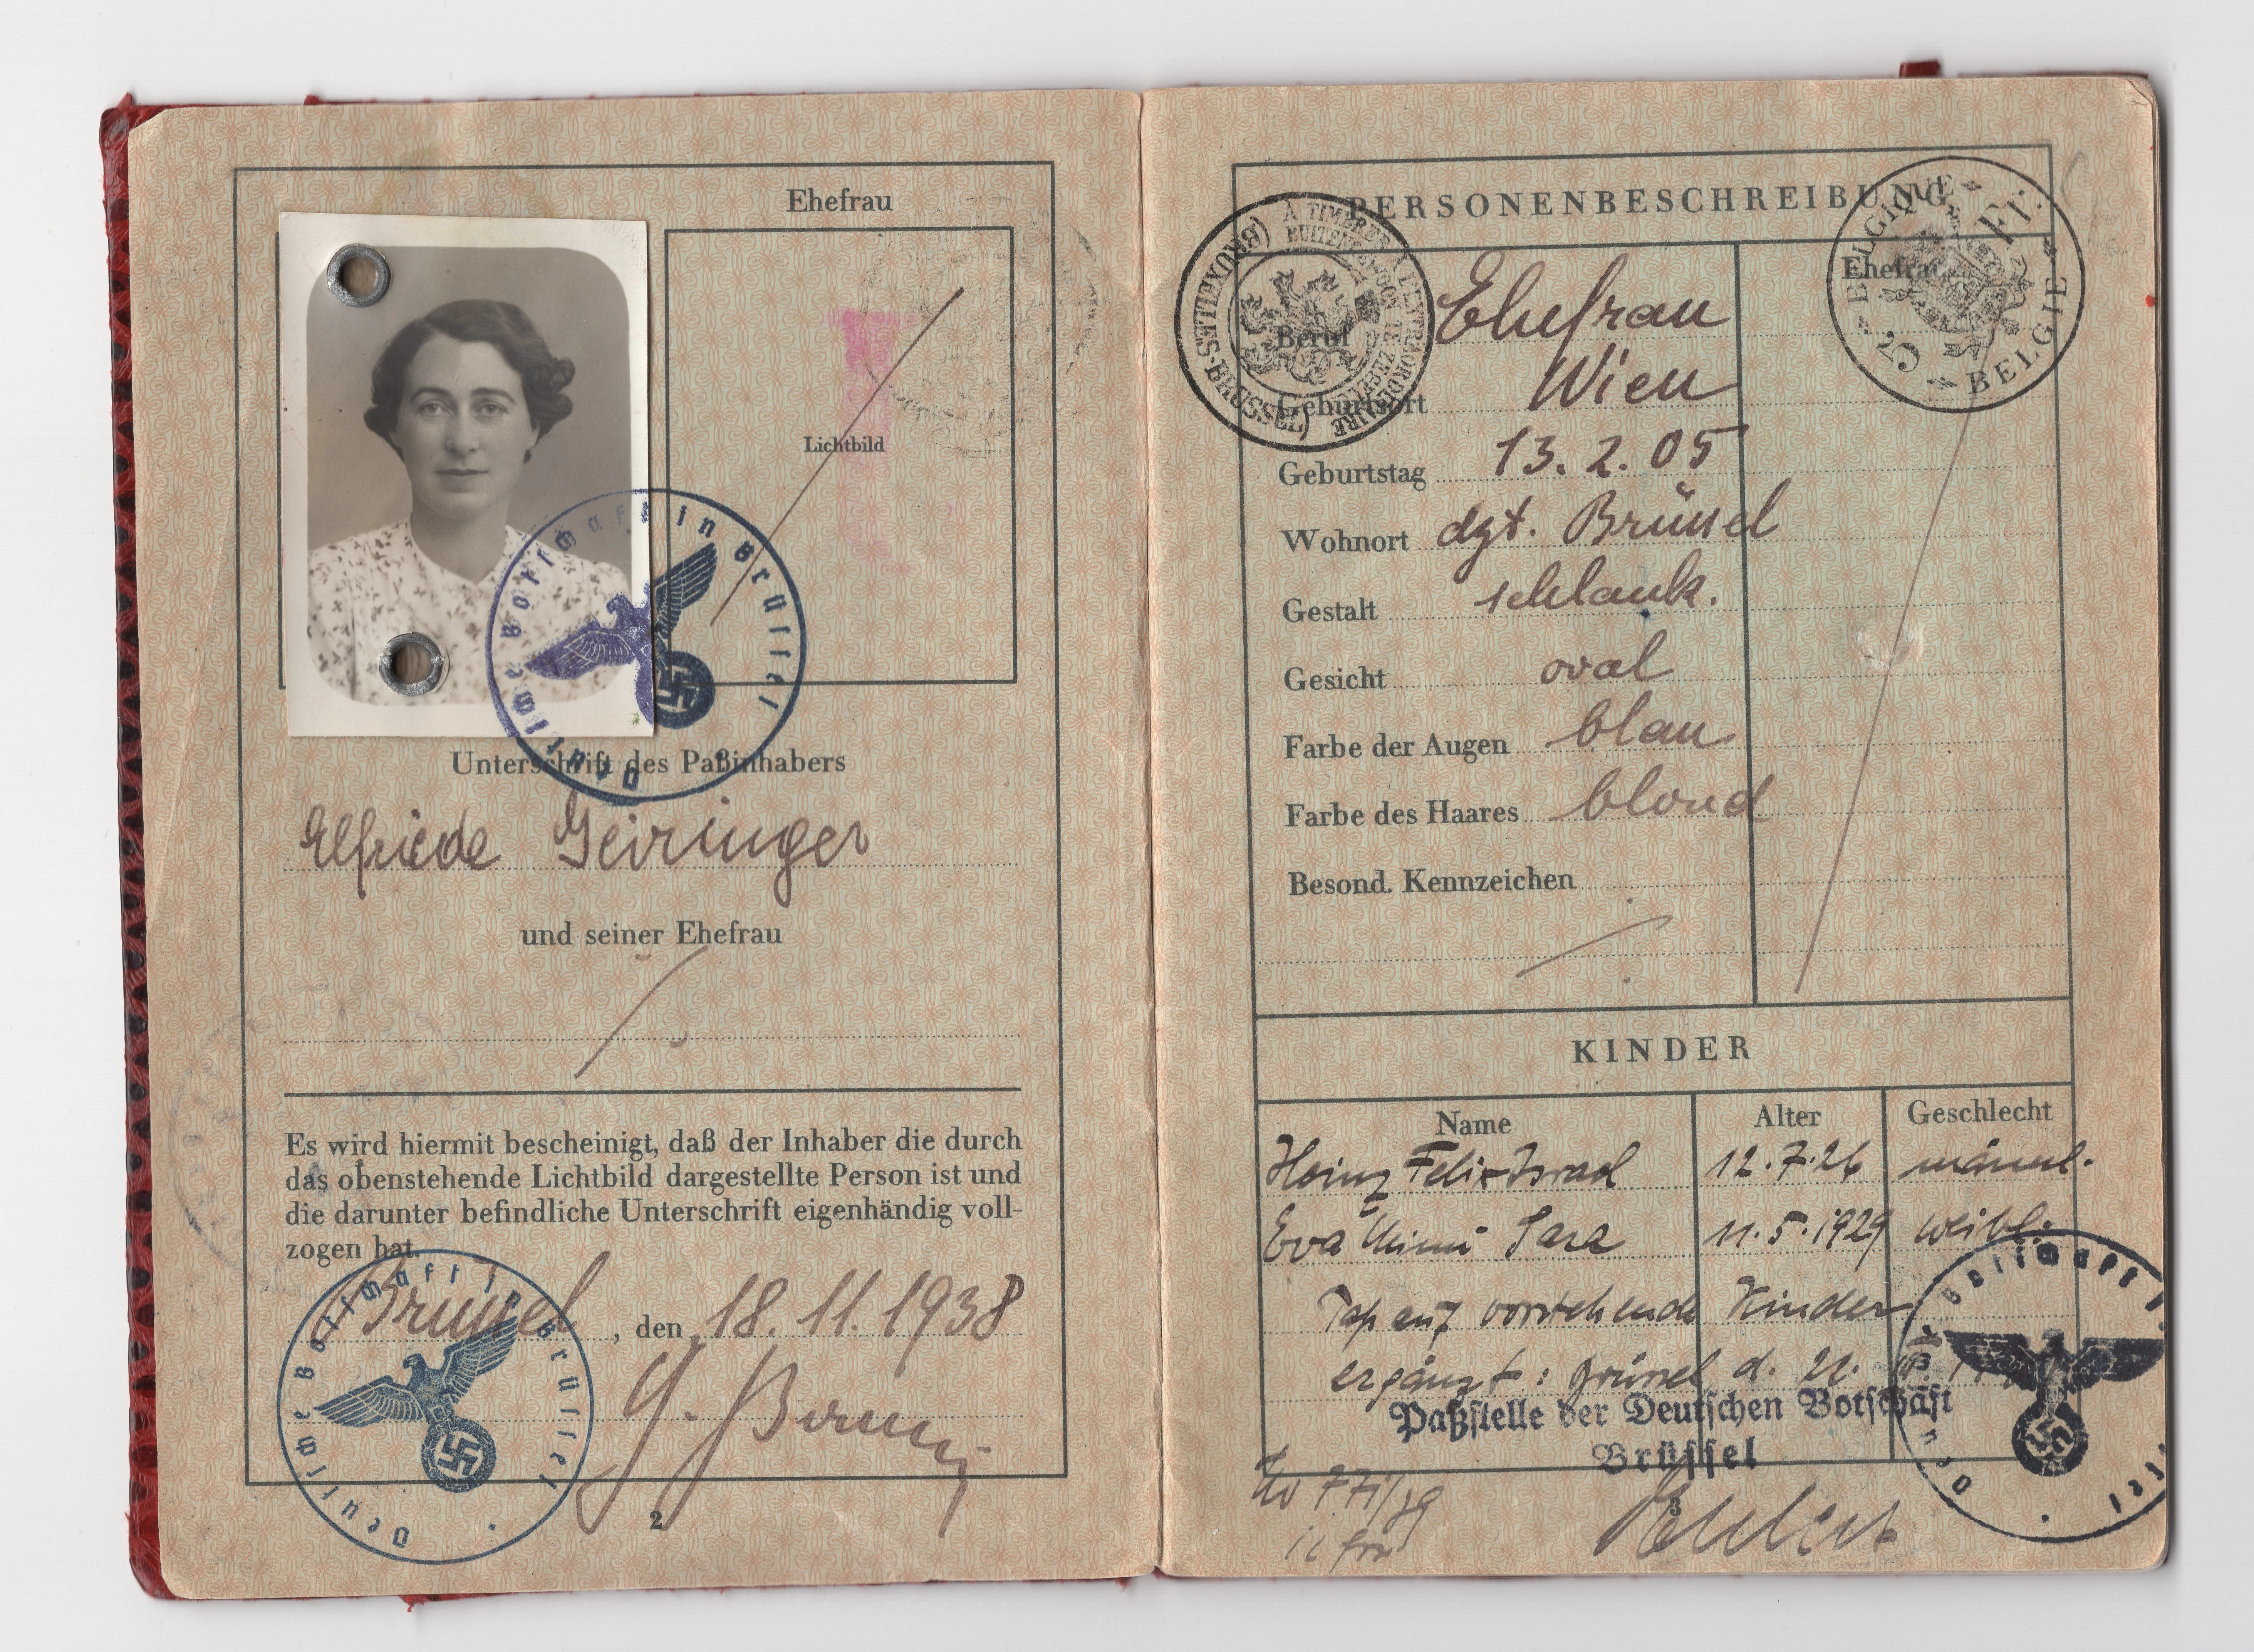 Ehefrau
Lichtbild
Deutsche Botschaft in Brüssel
Unterschrift des Paßinhabers
Elfriede Geiringer
und seiner Ehefrau
Es wird hiermit bescheinigt, daß der Inhaber die durch
das obenstehende Lichtbild dargestellte Person ist und
die darunter befindliche Unterschrift eigenhändig voll-
zogen hat.
Brüssel, den 18. 11. 1938
Deutsche Botschaft in Brüssel
2
PERSONENBESCHREIBUNG
BELGIQUE BELGIE 5 Fr.
Ehefrau
Beruf Ehefrau
Geburtsort Wien
Geburtstag 13. 2. 05
Wohnort dzt. Brüssel
Gestalt schlank.
Gesicht oval
Farbe der Augen blau
Farbe des Haares blond
Besond. Kennzeichen
KINDER
Name Alter Geschlecht
Heinz Felix Israel 12.7.26 männl.
Eva Mimi Sara 11.5.1929 weibl.
vorstehende Kinder
ergänzt: Brüssel d. 21.
Paßstelle der Deutschen Botschaft
Brüssel
3